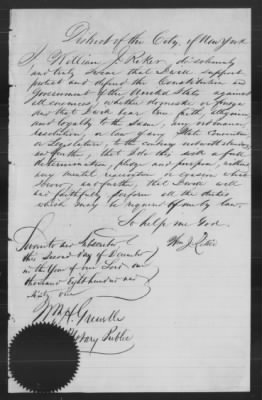 District of the City of New York
I, William J. Riker, do solemnly
and truly swear that I will support
protect and defend the Constitution and
Government of the United States against
all enemies, whether domestic or foreign
and that I will bear true faith, allegiance
and loyalty to the same, any ordinance,
Resolution, or law of any State Convention
or Legislature, to the contrary notwithstanding
and further, that I do this with a full
determination, pledge and purpose, without
any mental reservation or evasion whatsoever
and further, that I will well
and faithfully perform all the duties
which may be required of me by law.
So help me God.
Sworn to and Subscribed
this Second day of December
in the Year of our Lord one
thousand Eight hundred and
Ninety one
Wm J. Riker
Notary Public